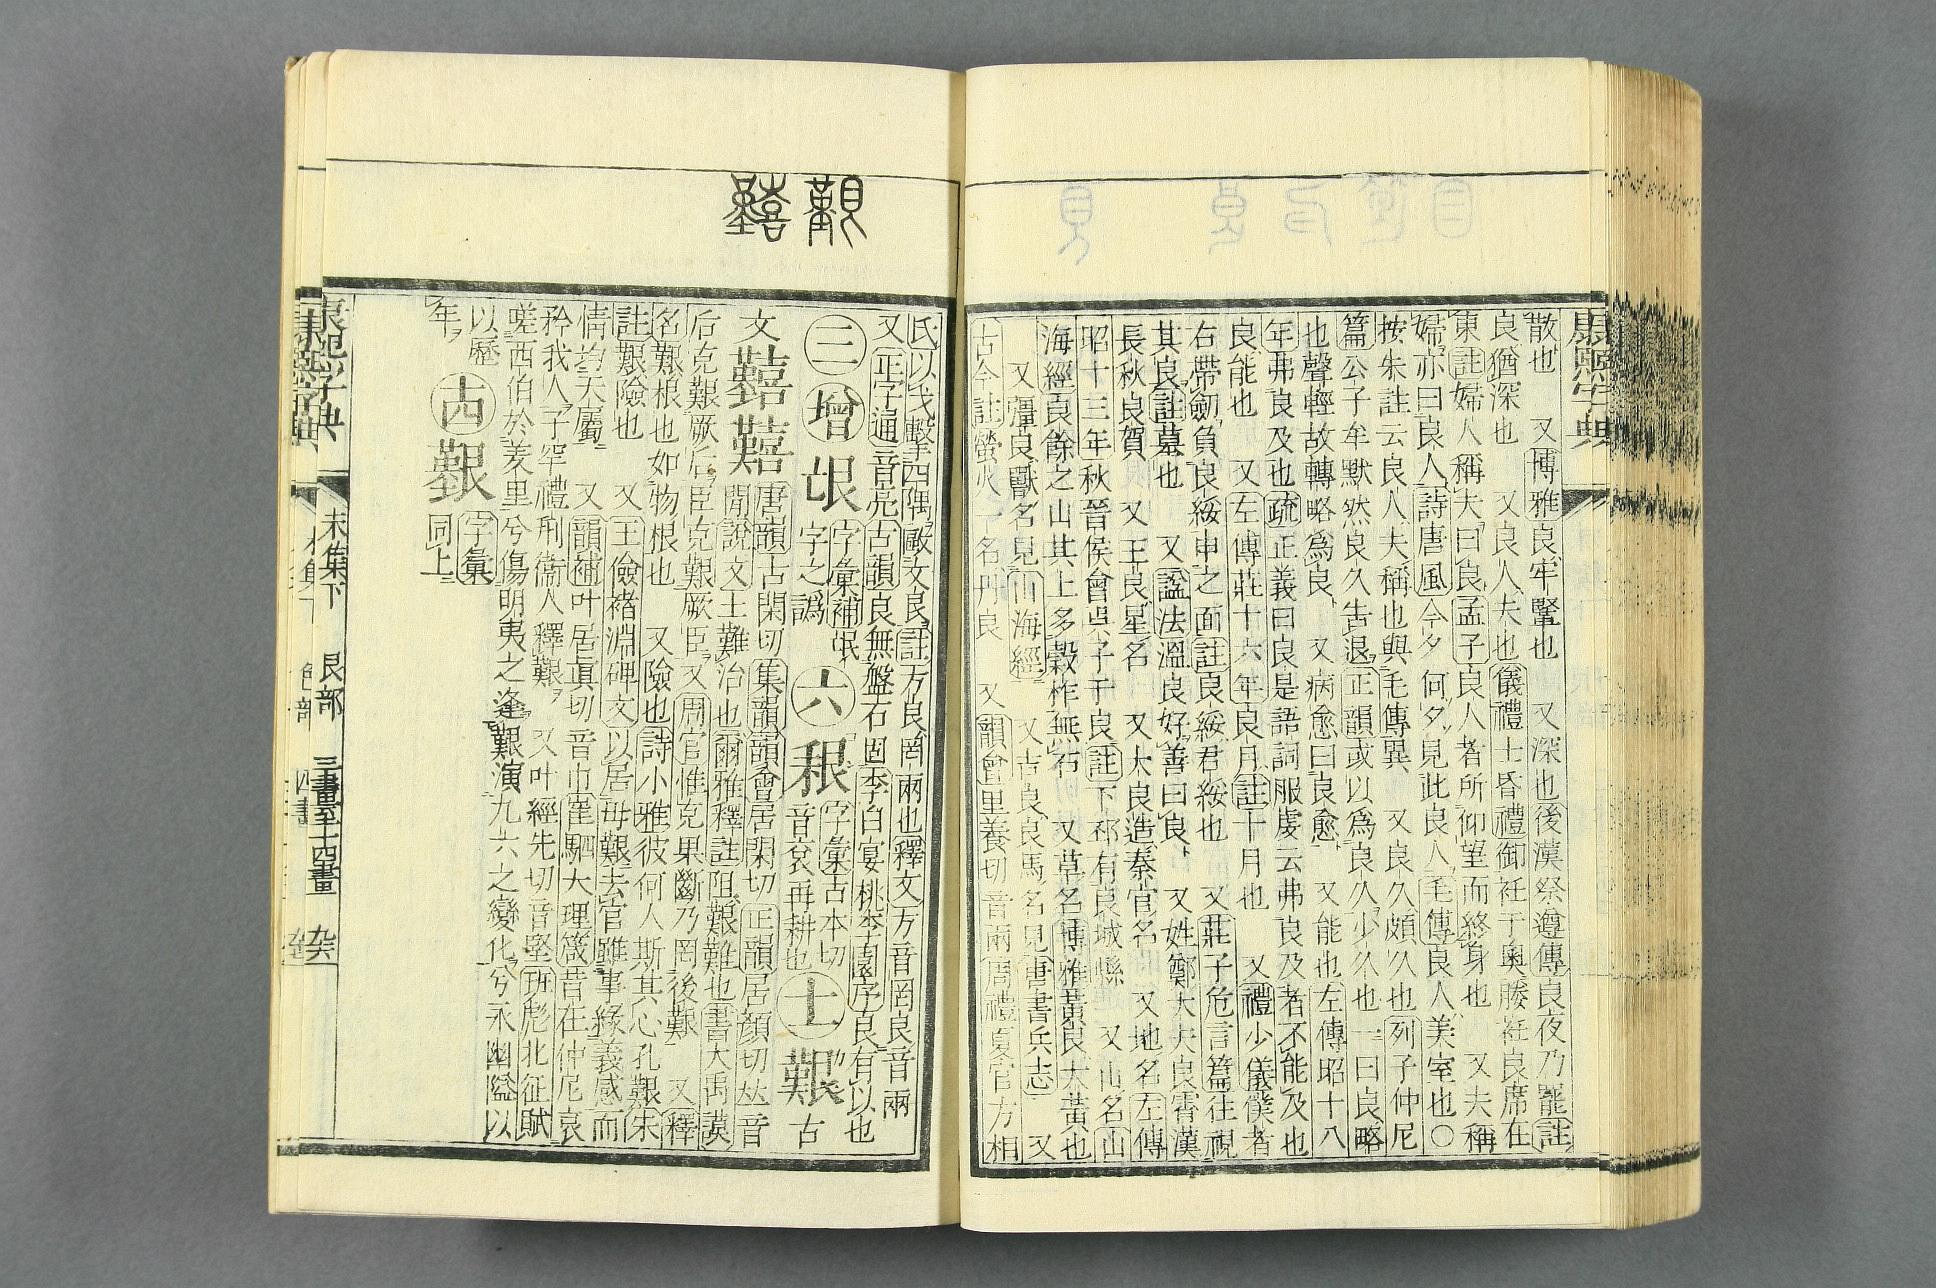 康熙字典
散也　又博雅良牢堅也　又深也後漢祭遵傳良夜乃罷註
良猶深也　又良人夫也儀禮士昏禮御衽于奧媵衽良席在
東註婦人稱夫曰良孟子良人者所仰望而終身也　又夫稱
婦亦曰良人詩唐風今夕何夕見此良人毛傳良人美室也〇
按朱註云良人夫稱也與毛傳異　又良久頗久也列子仲尼
篇公子牟默然良久告退正韻或以爲良久少久也一曰良略
也聲輕故轉略爲良　又病愈曰良愈　又能也左傳昭十八
年弗良及也疏正義曰良是語詞服虔云弗良及者不能及也
良能也　又左傳莊十六年良月註十月也　又禮少儀僕者
右帶劒負良綏申之面註良綏君綏也　又莊子危言篇往視
其良註墓也　又諡法溫良好善曰良　又姓鄭大夫良霄漢
長秋良賀　又王良星名　又大良造秦官名　又地名左傳
昭十三年秋晉侯會吳子于良註下邳有良城縣　又山名山
海經良餘之山其上多穀柞無石　又草名博雅黃良大黃也
又彊良獸名見山海經　又吉良良馬名見唐書兵志　又
古今註螢火一名丹良　又韻會里養切音兩周禮夏官方相
氏以戈擊四隅敺方良註方良罔兩也釋文方音罔良音兩
又正字通音亮古韻良無盤石固李白宴桃李園序良有以也
二 增 㫰 字彙補氓字之譌 六 䅣 字彙古本切音袞再耕也 十一 艱 古
文 囏 𡅥 唐韻古閑切集韻韻會居閑切正韻居顏切𠀤音
閒說文土難治也爾雅釋註阻艱難也書大禹謨
后克艱厥后臣克艱厥臣　又周官惟克果斷乃罔後艱　又釋
名艱根也如物根也　又險也詩小雅彼何人斯其心孔艱朱
註艱險也　又王儉褚淵碑文以居母艱去官雖事緣義感而
情均天屬　又韻補叶居眞切音巾崔駰大理箴昔在仲尼哀
矜我人子罕禮刑衞人釋艱　又叶經先切音堅班彪北征賦
嗟西伯於羑里兮傷明夷之逢艱演九六之變化兮永幽隘以
以歷
年 古 艱 字彙同上
康熙字典 未集下 艮部 二畫至十四畫
康熙字典 色部 四畫